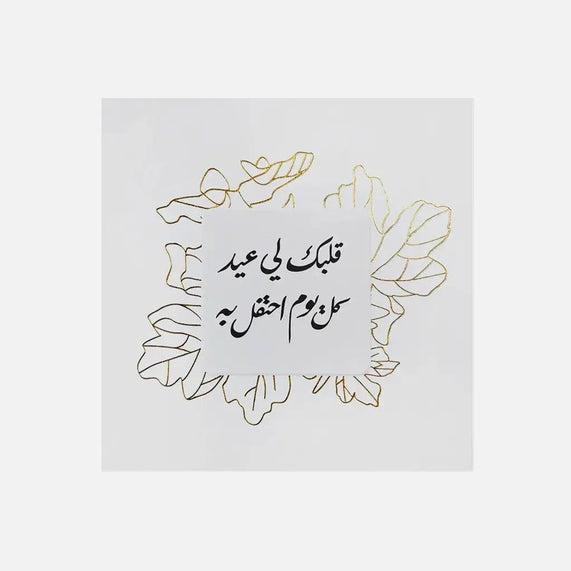 قلبك لي عيد
كل يوم احتفل به